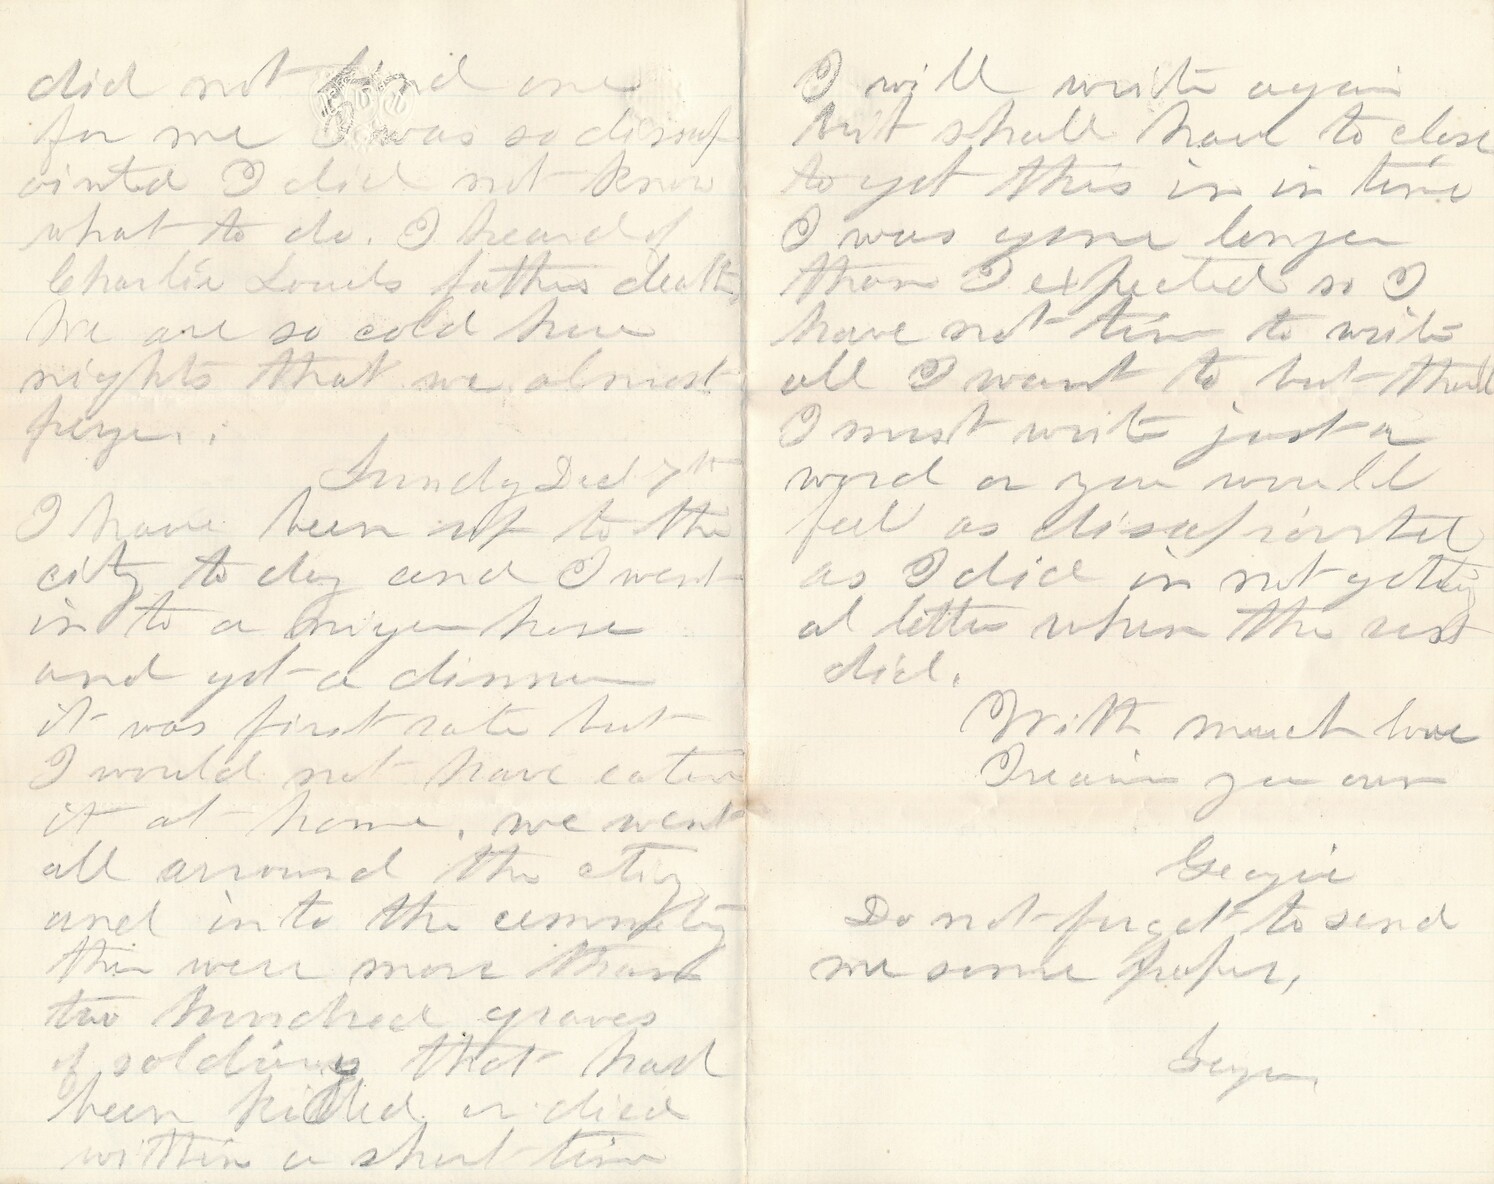 did not find one
for me I was so dissap
ointed I did not know
what to do. I heard of
Charlie Louds fathers death,
We are so cold here
nights that we almost
freze.
Sundy Dec 7th
I have been up to the
city to day and I went
in to a niger hose
and got a dinner
it was first rate but
I would not have eaten
it at home. we went
all arround the citey
and in to the cemmetey
thir were more than
two hundred graves
of soldiers that had
been killed or died
within a short time
I will write again
but shall have to close
to get this in in time
I was gone longer
than I expected so I
have not time to write
all I want to but thout
I must write just a
word or you would
feel as disapointed
as I did in not getting
a letter when the rest
did.
With much love
I remain you own
Georgie
Do not forget to send
me some paper,